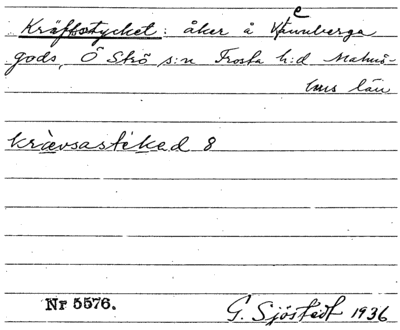 Kräffsstycket: åker å Hennberga
gods, Ö Strö s:n Frosta h:d Malmö-
hus län
krävsastiked 8
Nr 5576.
G. Sjöstedt 1936